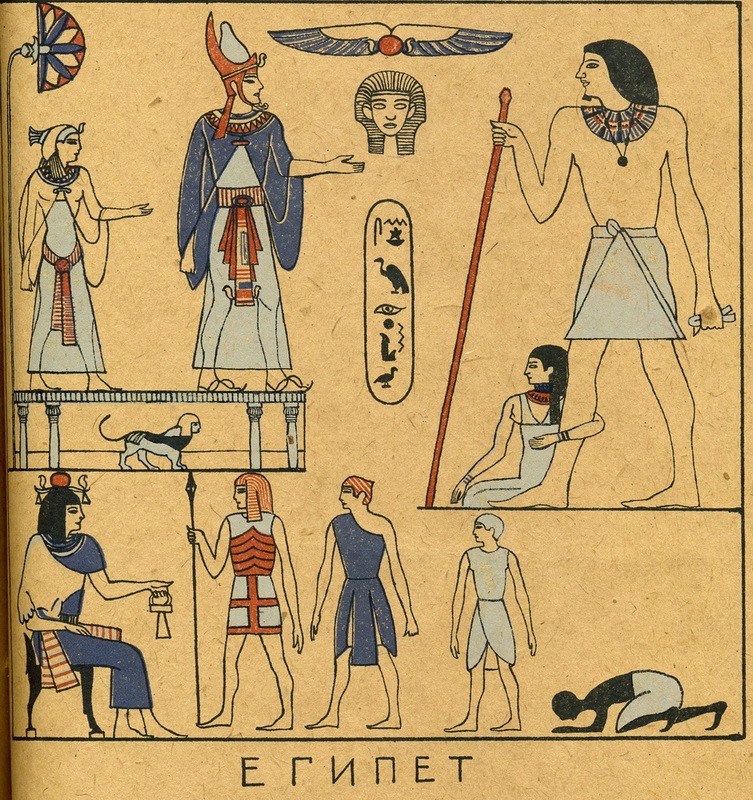 ЕГИПЕТ